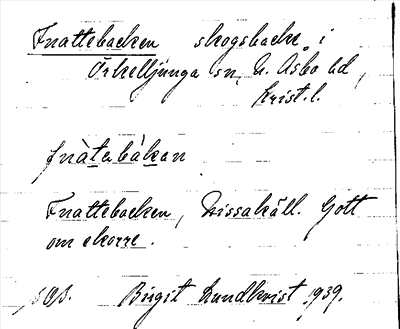 Fnattebacken skogsbacke i
Örkelljunga sn, N. Åsbo hd,
Krist. l.
fnàtebákan
Fnattebacken, Nissakäll. Gott
om ekorre.
Birgit Lundkvist 1939.